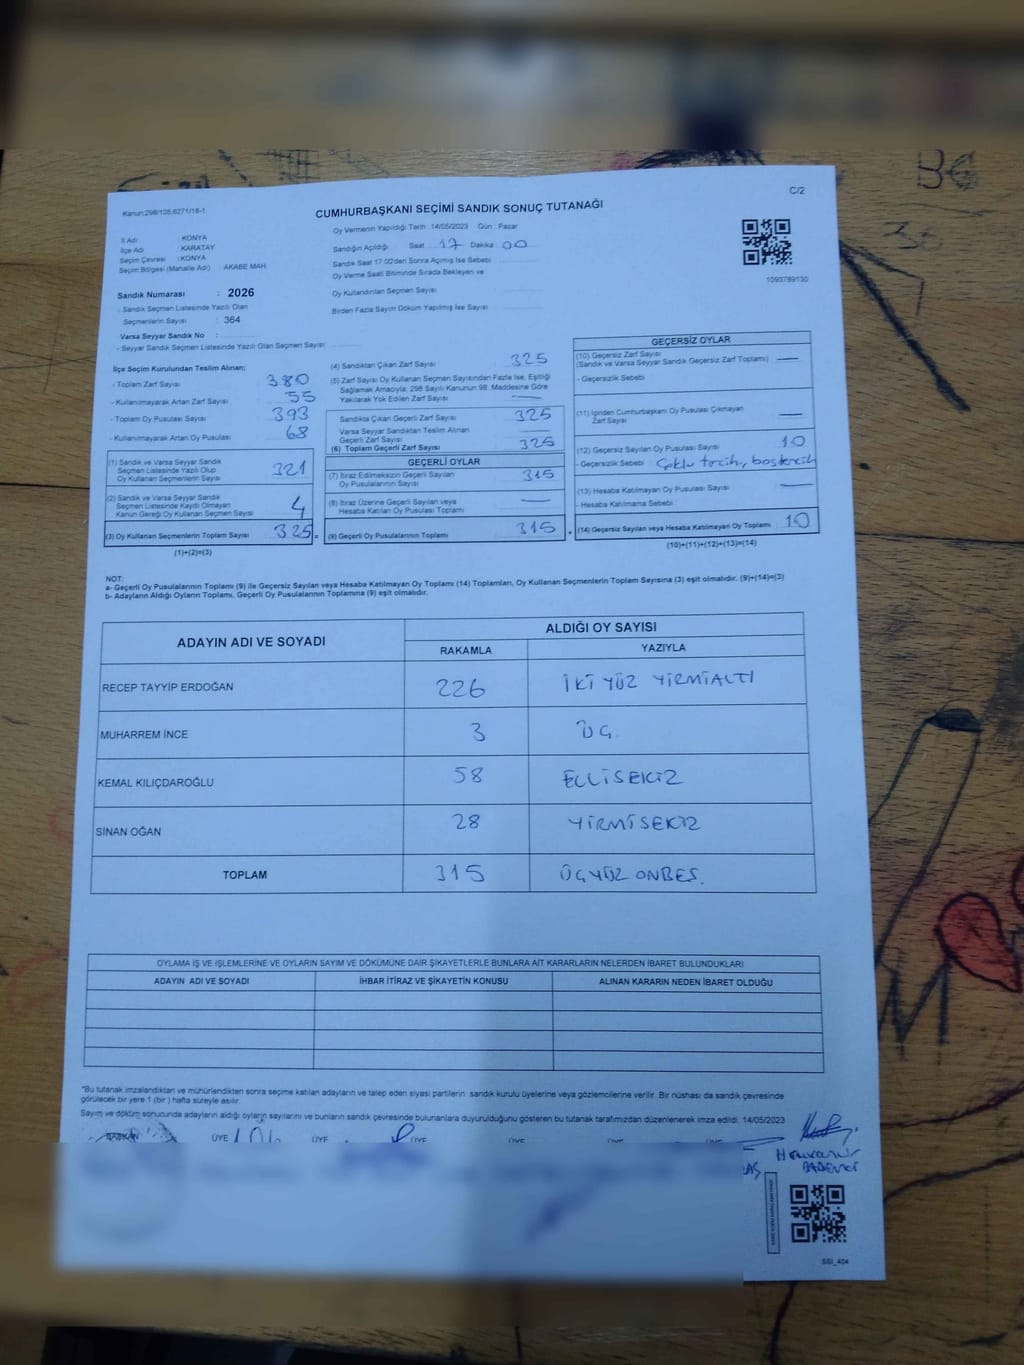 C/2
Kanun:298/105,6271/18-1
CUMHURBAŞKANI SEÇİMİ SANDIK SONUÇ TUTANAĞI
Oy Vermenin Yapıldığı Tarih : 14/05/2023 Gün : Pazar
İl Adı : KONYA
İlçe Adı : KARATAY
Seçim Çevresi : KONYA
Seçim Bölgesi (Mahalle Adı) AKABE MAH
Sandığın Açıldığı Saat 17 Dakika 00
Sandık Saat 17:00'den Sonra Açımış İse Sebebi
Oy Verme Saati Bitiminde Sırada Bekleyen ve
Oy Kullandırılan Seçmen Sayısı
Birden Fazla Sayım Döküm Yapılmış İse Sayısı
1093789130
Sandık Numarası : 2026
- Sandık Seçmen Listesinde Yazılı Olan
Seçmenlerin Sayısı : 364
Varsa Seyyar Sandık No :
- Seyyar Sandık Seçmen Listesinde Yazılı Olan Seçmen Sayısı
İlçe Seçim Kurulundan Teslim Alınan;
- Toplam Zarf Sayısı 380
- Kullanılmayarak Artan Zarf Sayısı 55
- Toplam Oy Pusulası Sayısı 393
- Kullanılmayarak Artan Oy Pusulası 68
(1) Sandık ve Varsa Seyyar Sandık
Seçmen Listesinde Yazılı Olup
Oy Kullanan Seçmenlerin Sayısı 321
(2) Sandık ve Varsa Seyyar Sandık
Seçmen Listesinde Kayıtlı Olmayan
Kanun Gereği Oy Kullanan Seçmen Sayısı 4
(3) Oy Kullanan Seçmenlerin Toplam Sayısı 325 =
(1)+(2)=(3)
(4) Sandıktan Çıkan Zarf Sayısı 325
(5) Zarf Sayısı Oy Kullanan Seçmen Sayısından Fazla İse, Eşitliği
Sağlamak Amacıyla; 298 Sayılı Kanunun 98. Maddesine Göre
Yakılarak Yok Edilen Zarf Sayısı —
Sandıkta Çıkan Geçerli Zarf Sayısı 325
Varsa Seyyar Sandıktan Teslim Alınan
Geçerli Zarf Sayısı —
(6) Toplam Geçerli Zarf Sayısı 325
GEÇERLİ OYLAR
(7) İtiraz Edilmeksizin Geçerli Sayılan
Oy Pusulalarının Sayısı 315
(8) İtiraz Üzerine Geçerli Sayılan veya
Hesaba Katılan Oy Pusulası Toplamı —
(9) Geçerli Oy Pusulalarının Toplamı 315 +
GEÇERSİZ OYLAR
(10) Geçersiz Zarf Sayısı
(Sandık ve Varsa Seyyar Sandık Geçersiz Zarf Toplamı) —
- Geçersizlik Sebebi
(11) İçinden Cumhurbaşkanı Oy Pusulası Çıkmayan
Zarf Sayısı —
(12) Geçersiz Sayılan Oy Pusulası Sayısı 10
- Geçersizlik Sebebi Çoklu tercih, boş tercih
(13) Hesaba Katılmayan Oy Pusulası Sayısı —
- Hesaba Katılmama Sebebi
(14) Geçersiz Sayılan veya Hesaba Katılmayan Oy Toplamı 10
(10)+(11)+(12)+(13)=(14)
NOT:
a- Geçerli Oy Pusulalarının Toplamı (9) ile Geçersiz Sayılan veya Hesaba Katılmayan Oy Toplamı (14) Toplamları, Oy Kullanan Seçmenlerin Toplam Sayısına (3) eşit olmalıdır. (9)+(14)=(3)
b- Adayların Aldığı Oyların Toplamı, Geçerli Oy Pusulalarının Toplamına (9) eşit olmalıdır.
ADAYIN ADI VE SOYADI ALDIĞI OY SAYISI
RAKAMLA YAZIYLA
RECEP TAYYİP ERDOĞAN 226 İKİ YÜZ YİRMİALTI
MUHARREM İNCE 3 ÜÇ.
KEMAL KILIÇDAROĞLU 58 ELLİSEKİZ
SİNAN OĞAN 28 YİRMİSEKİZ
TOPLAM 315 ÜÇYÜZ ONBEŞ.
OYLAMA İŞ VE İŞLEMLERİNE VE OYLARIN SAYIM VE DÖKÜMÜNE DAİR ŞİKAYETLERLE BUNLARA AİT KARARLARIN NELERDEN İBARET BULUNDUKLARI
ADAYIN ADI VE SOYADI İHBAR İTİRAZ VE ŞİKAYETİN KONUSU ALINAN KARARIN NEDEN İBARET OLDUĞU
*Bu tutanak imzalandıktan ve mühürlendikten sonra seçime katılan adayların ve talep eden siyasi partilerin sandık kurulu üyelerine veya gözlemcilerine verilir. Bir nüshası da sandık çevresinde
görülecek bir yere 1 (bir ) hafta süreyle asılır.
Sayım ve döküm sonucunda adayların aldığı oyların sayılarını ve bunların sandık çevresinde bulunanlara duyurulduğunu gösteren bu tutanak tarafımızdan düzenlenerek imza edildi. 14/05/2023
BAŞKAN ÜYE ÜYE ÜYE ÜYE ÜYE ÜYE
SSI_404